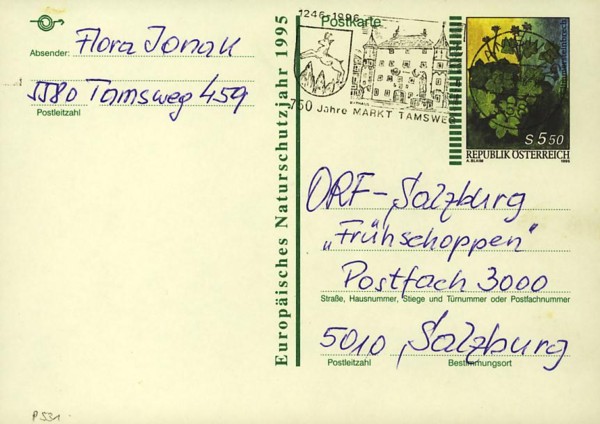 1246-1996
Postkarte
Absender: Flora Jonak
5580 Tamsweg 459
Postleitzahl
750 Jahre MARKT TAMSWEG
Europäisches Naturschutzjahr 1995
S 5 50
REPUBLIK ÖSTERREICH
1995
ORF-Salzburg
„Frühschoppen"
Postfach 3000
Straße, Hausnummer, Stiege und Türnummer oder Postfachnummer
5010 Salzburg
Postleitzahl Bestimmungsort
P 531